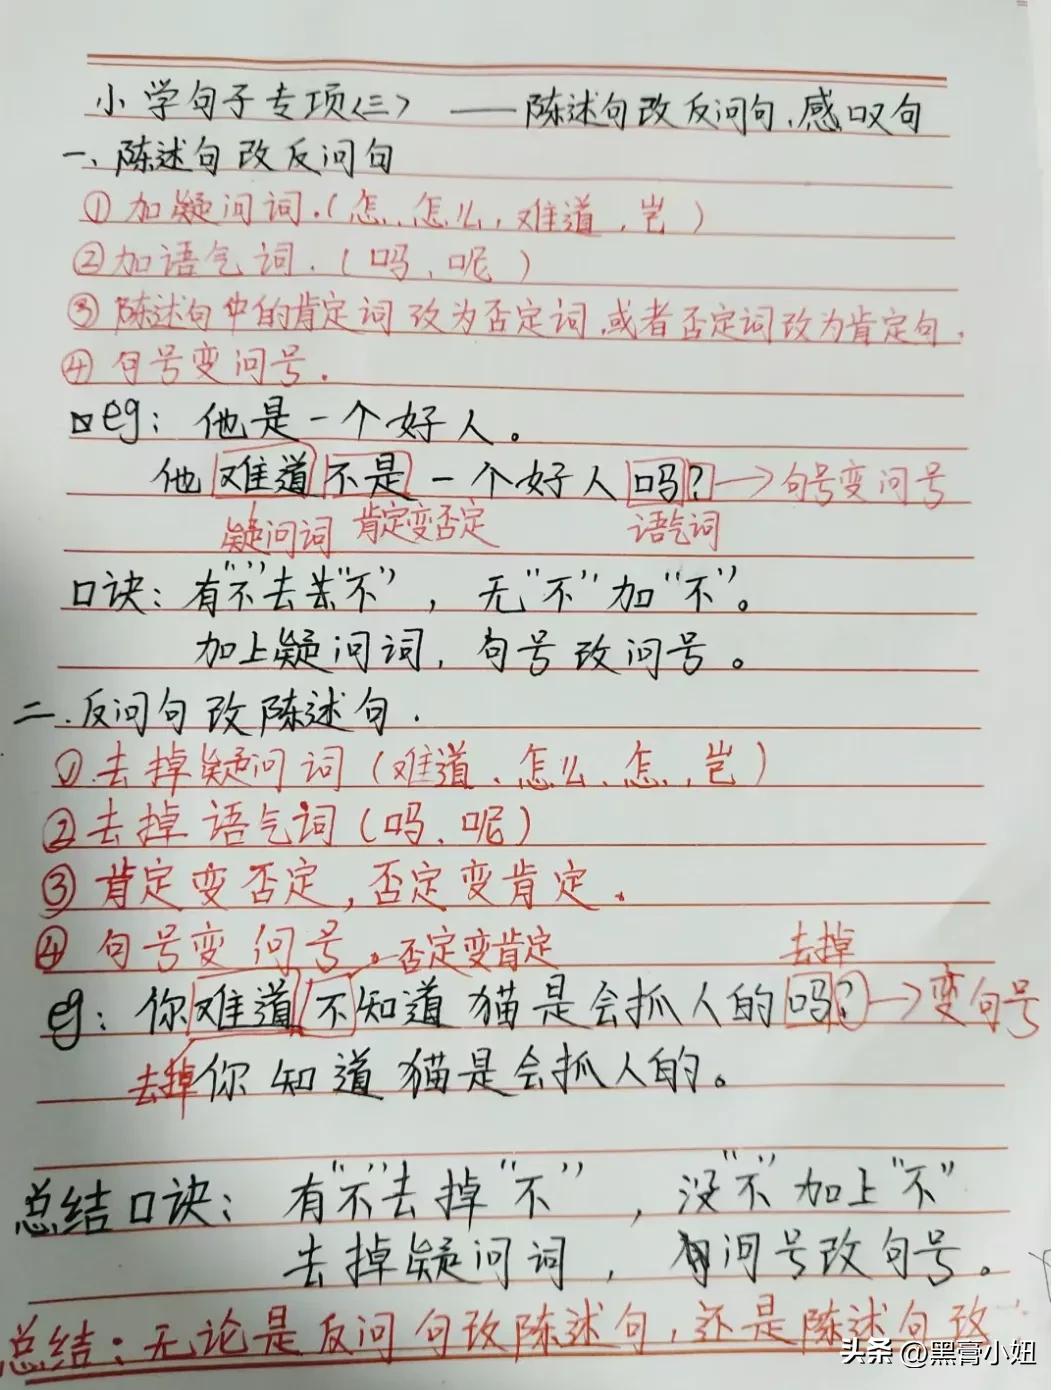 小学句子专项(三) ——陈述句改反问句、感叹句
一、陈述句改反问句
①加疑问词.(怎、怎么,难道,岂)
②加语气词.(吗、呢)
③陈述句中的肯定词改为否定词,或者否定词改为肯定句.
④句号变问号.
eg:他是一个好人。
他难道不是一个好人吗?→句号变问号
疑问词 肯定变否定 语气词
口诀:有“不”去“不”,无“不”加“不”。
加上疑问词,句号改问号。
二.反问句改陈述句.
①.去掉疑问词(难道、怎么、怎、岂)
②去掉语气词(吗、呢)
③肯定变否定,否定变肯定.
④句号变问号.
否定变肯定 去掉
eg:你难道不知道猫是会抓人的吗?→变句号
去掉
你知道猫是会抓人的。
总结口诀:有“不”去掉“不”,没“不”加上“不”
去掉疑问词,问号改句号。
总结:无论是反问句改陈述句,还是陈述句改
头条@黑膏小妞